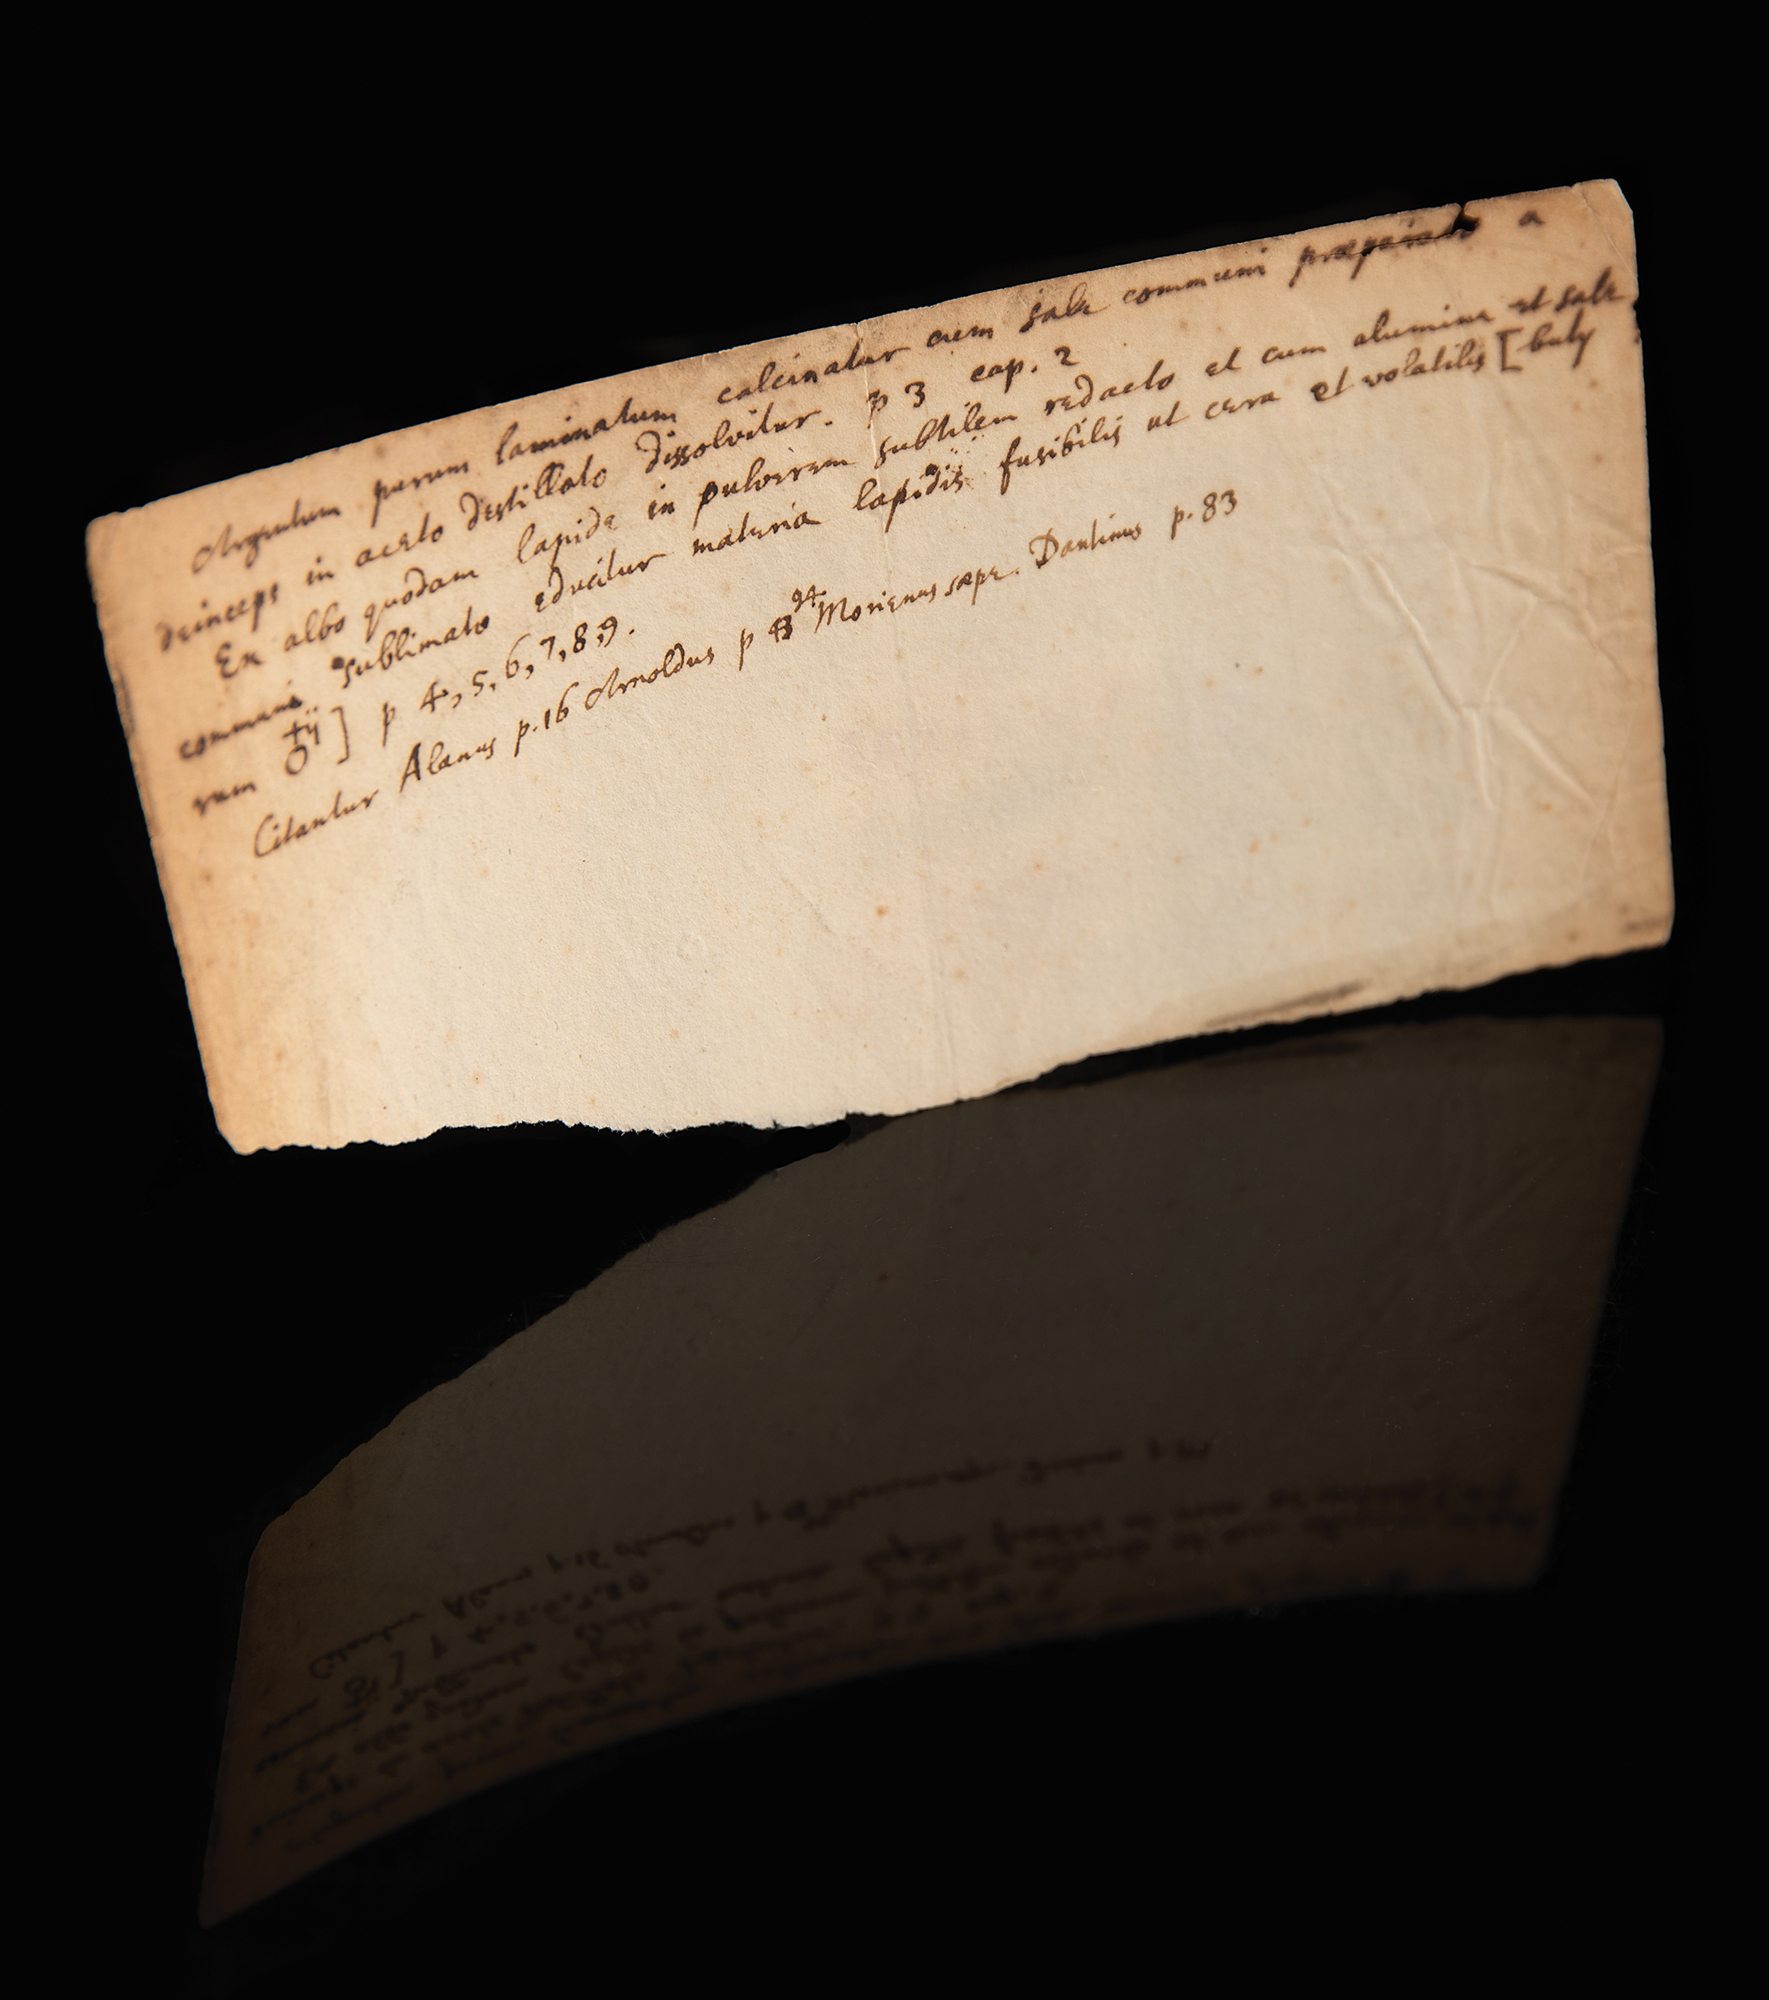 Argentum purum laminatum calcinatur cum sale communi præparato a
deinceps in aceto destillato dissolvitur. p 3 cap. 2
Ex albo quodam lapide in pulverem subtilem redacto et cum alumine et sale
communi sublimato educitur materia lapidis fusibilis ut cera et volatilis [buty
rum ♁ij] p 4, 5, 6, 7, 8, 9.
Citantur Alanus p. 16 Arnoldus p 94 Morienus sæpe. Dantinus p. 83